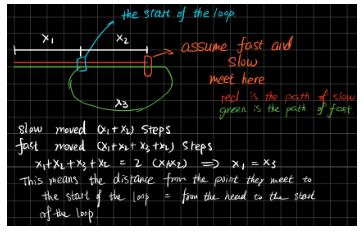 the start of the loop
x1
x2
assume fast and
slow
meet here
x3
red is the path of slow
green is the path of fast
slow moved (x1+x2) steps
fast moved (x1+x2+x3+x2) steps
x1+x2+x3+x2 = 2 (x1+x2) ⟹ x1 = x3
This means, the distance from the point they meet to
the start of the loop = from the head to the start
of the loop